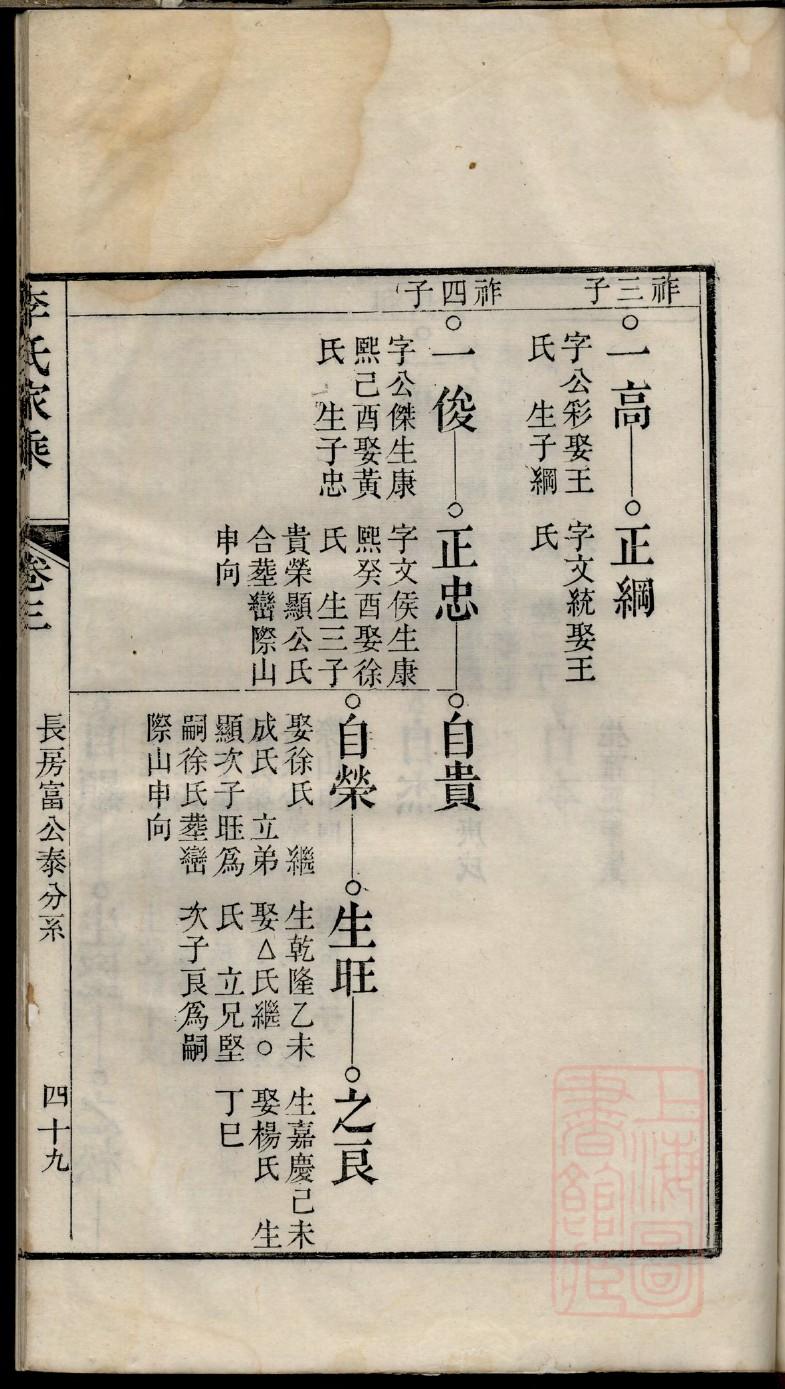 祚三子
一高
字公彩娶王
氏　生子綱
正綱
字文統娶王
氏
祚四子
一俊
字公傑生康
熙己酉娶黃
氏　生子忠
正忠
字文侯生康
熙癸酉娶徐
氏　生三子
貴榮顯公氏
合塟巒際山
申向
自貴
自榮
娶徐氏　繼
成氏　立弟
顯次子旺爲
嗣徐氏塟巒
際山申向
生旺
生乾隆乙未
娶△氏繼○
氏　立兄堅
次子良爲嗣
之良
生嘉慶己未
娶楊氏　生
丁巳
李氏家乘
卷三
長房富公泰分系
四十九
上海圖
書館藏